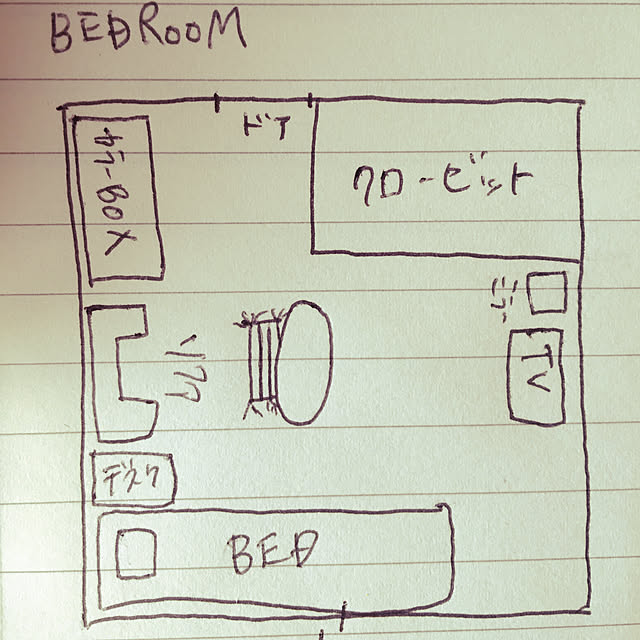 BEDROOM
ドア
カラーBOX
クロービット
ソファ
TV
デスク
BED